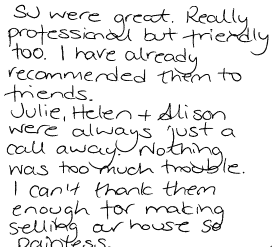 SJ were great. Really
professional but friendly
too. I have already
recommended them to
friends.
Julie, Helen + Alison
were always just a
call away. Nothing
was too much trouble.
I can't thank them
enough for making
selling our house so
painless.